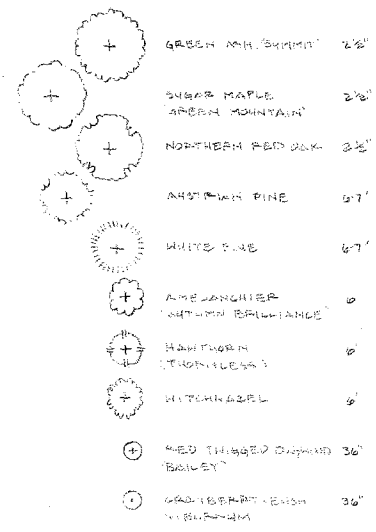 GREEN ASH, 'SUMMIT' 2½"
SUGAR MAPLE 2½"
'GREEN MOUNTAIN'
NORTHERN RED OAK 2½"
AUSTRIAN PINE 6-7'
WHITE PINE 6-7'
AMELANCHIER 6'
'AUTUMN BRILLIANCE'
HAWTHORN 6'
(THORNLESS)
WITCHHAZEL 6'
RED TWIGGED DOGWOOD 36"
'BAILEY'
CRANBERRY BUSH 36"
VIBURNUM